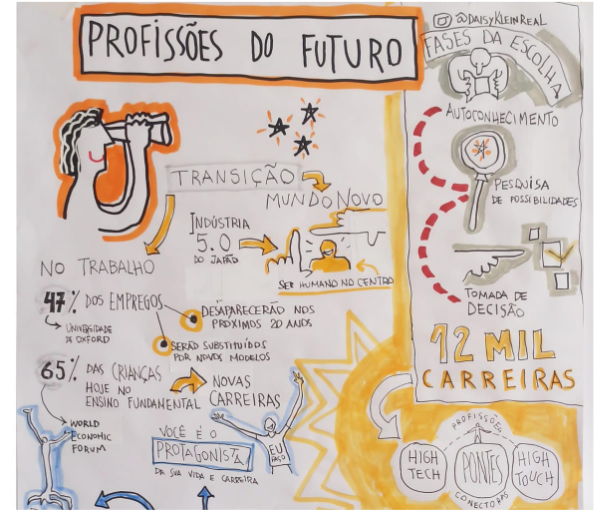 PROFISSÕES DO FUTURO
@DAISYKLEINREAL
FASES DA ESCOLHA
AUTOCONHECIMENTO
PESQUISA
DE POSSIBILIDADES
TOMADA DE
DECISÃO
12 MIL
CARREIRAS
TRANSIÇÃO
MUNDO NOVO
INDÚSTRIA
5.0
DO JAPÃO
SER HUMANO NO CENTRO
NO TRABALHO
47% DOS EMPREGOS
UNIVERSIDADE
DE OXFORD
DESAPARECERÃO NOS
PRÓXIMOS 20 ANOS
SERÃO SUBSTITUÍDOS
POR NOVOS MODELOS
65% DAS CRIANÇAS
HOJE NO
ENSINO FUNDAMENTAL
NOVAS
CARREIRAS
WORLD
ECONOMIC
FORUM
VOCÊ É O
PROTAGONISTA
DA SUA VIDA E CARREIRA
EU
FAÇO
PROFISSÕES
HIGH
TECH
PONTES
HIGH
TOUCH
CONECTORAS